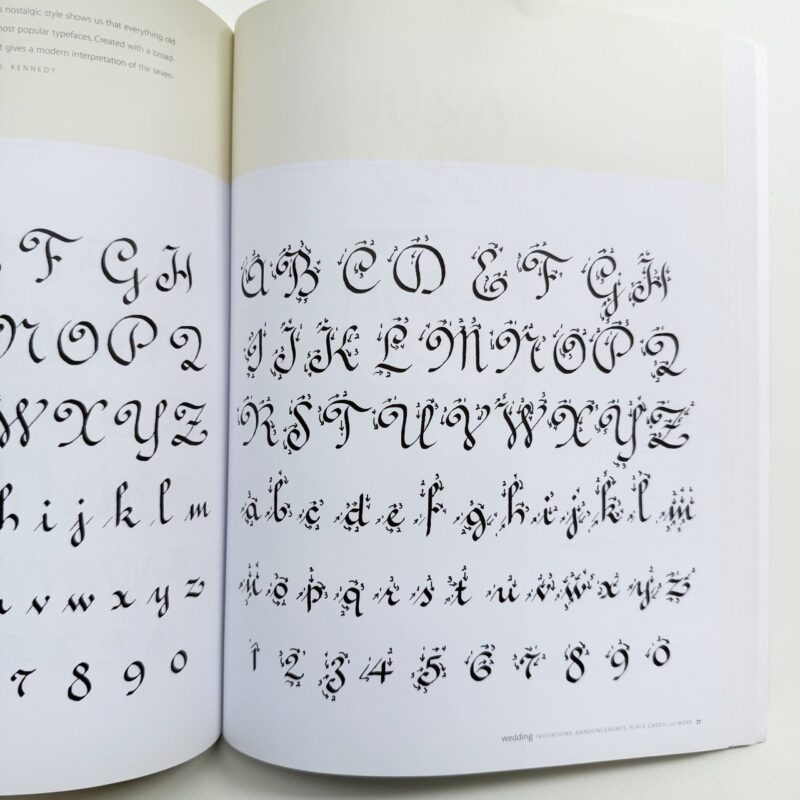 nostalgic style shows us that everything old
most popular typefaces. Created with a broad-
gives a modern interpretation of the seven-
KENNEDY
F G H
N O P Q
W X Y Z
h i j k l m
v w x y z
7 8 9 0
A B C D E F G H
I J K L M N O P Q
R S T U V W X Y Z
a b c d e f g h i j k l m
n o p q r s t u v w x y z
1 2 3 4 5 6 7 8 9 0
wedding INVITATIONS, ANNOUNCEMENTS, PLACE CARDS, and MORE 77